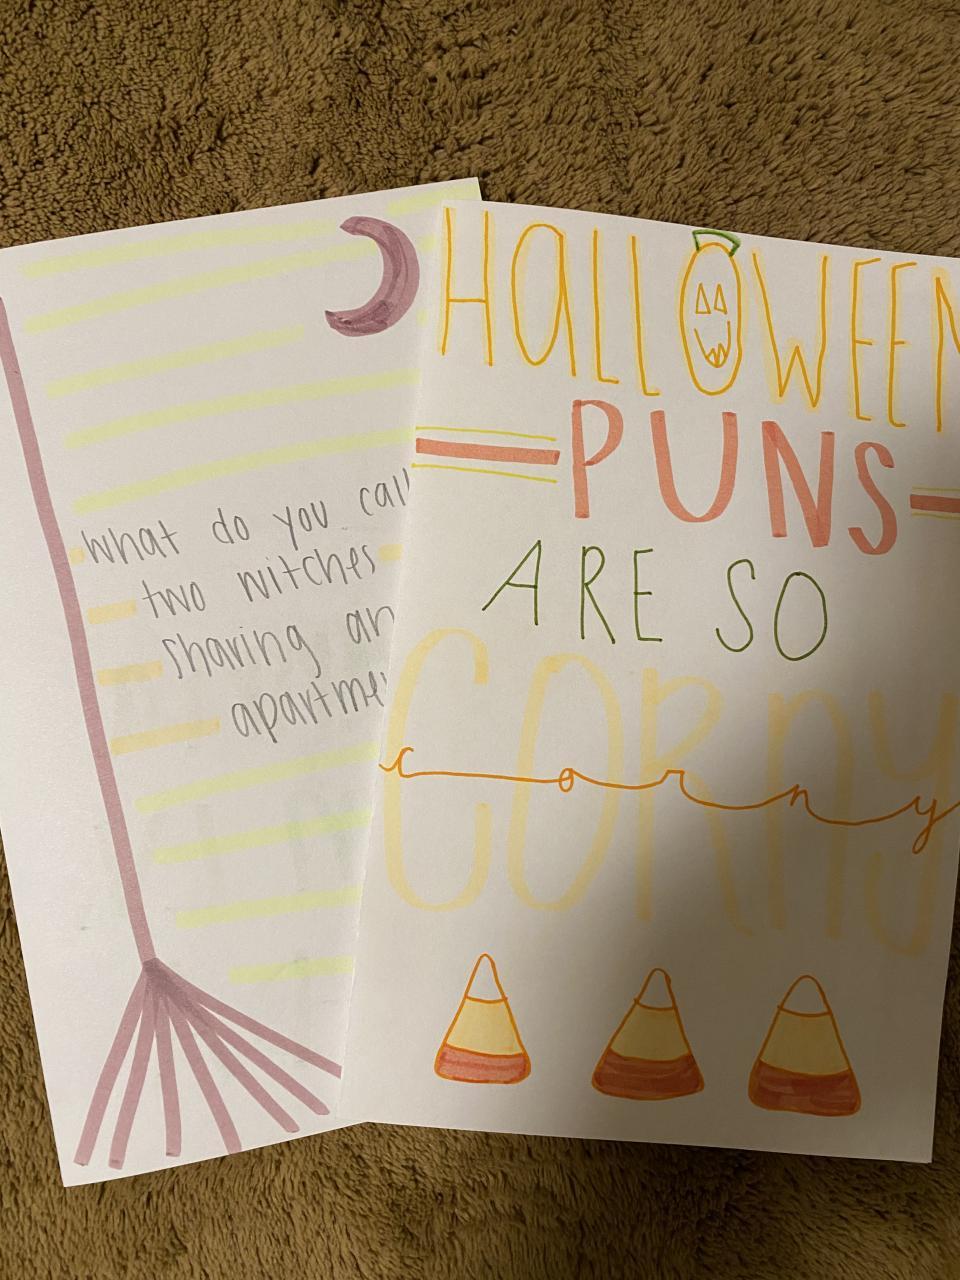 What do you call
two witches
sharing an
apartme
HALLOWEEN
PUNS
ARE SO
CORNY
corny